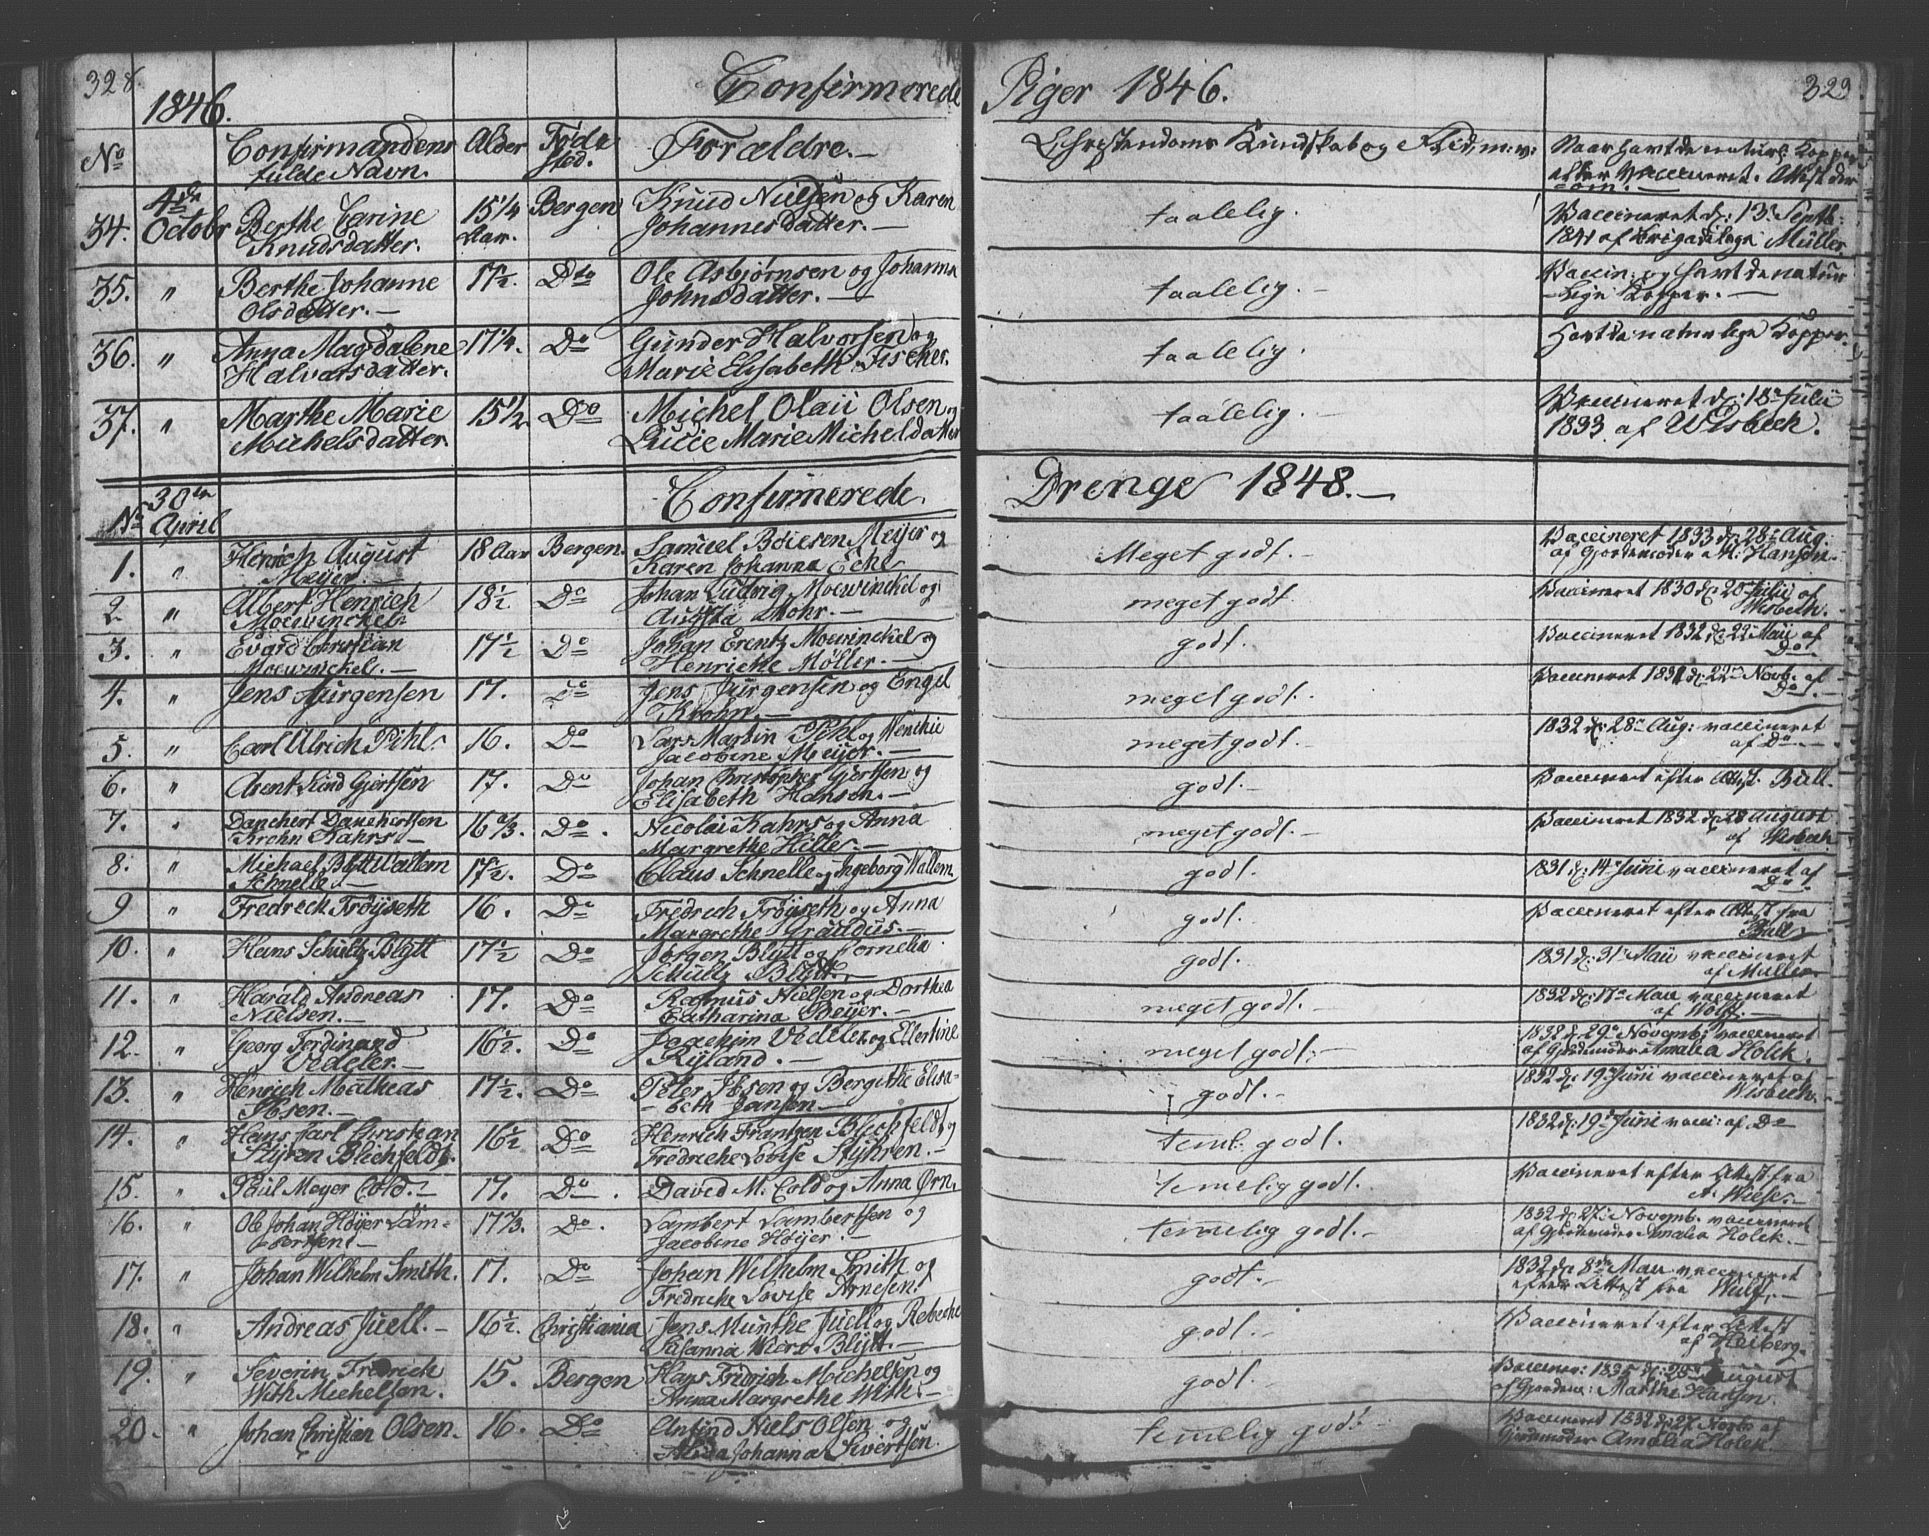 328.
1846.
Confirmerede Piger 1846.
329
No Confirmandens fulde Navn. Alder Føde sted. Forældre.— Christendoms Kundskab og Flid m: v: Naar havt de naturl: Kopper
eller vaccineret. Attest der
om.—
34. 4de Octobr Berthe Carine 15 1/4 Bergen Knud Nielsen og Karen taalelig. Vaccineret d: 13 Septb:
Knudsdatter. Aar. Johannesdatter.— 1841 af Brigadelege Müller.
35. " Berthe Johanne 17 1/2. Dto Ole Asbjørnsen og Johanna taalelig.— Vaccin: og havt de natur
Olsdatter.— Johnsdatter.— lige Kopper.—
36. " Anna Magdalene 17 1/4. Do Gunder Halvorsen og taalelig. Havt de naturlige Kopper.
Halvorsdatter. Marie Elisabeth Fischer.
37. " Marthe Marie 15 1/2 Do Michel Olaii Olsen og taalelig.— Vaccineret d: 18 Julii
Michelsdatter. Lucie Marie Micheldatter 1833 af Wisbech.
No 30te April Confirmerede Drenge 1848.—
1. " Henrich August 18 Aar Bergen. Samuel Boiesen Meijer og Meget godt.— Vaccineret 1833 d: 28 Aug.
Meijer.— Karen Johanna af Gjordemoder M: Hansen.
2. " Albert Henrich 18 1/2 Do Johan Ludvig Moewinckel og meget godt. Vaccineret 1830 d: 20 Julii af
Moewinckel Augusta Krohr.— Wisbech.
3. " Evard Christian 17 1/2 Do Johan Erentz Moewinckel og godt. Vaccineret 1832 d: 22 Maii af
Moewinckel.— Henriette Möller.— Do
4. " Jens Jürgensen 17. Do Jens Jürgensen og Engel meget godt. Vaccineret 1831 d: 22 Novb. af
Krohn.— Do
5. " Carl Ulrich Pihl 16. Do Lars Martin Pihl og Wenchie meget godt.— 1832 d: 28 Aug: vaccineret
Jacobine Meijer.— af Do
6. " Arent Lind Gjertsen 17. Do Johan Christopher Gjertsen og godt.— Vaccineret efter Attest Bull.
Elisabeth Hansen.—
7. " Danchert Danchertsen 16 2/3. Do. Nicolai Kahrs og Anna meget godt.— Vaccineret 1832 d: 28 August
Krohn Kahrs— Margrethe Hille.— af Wisbech
8. " Michael Blytt Wallem 17 1/2. Do Claus Schnelle og Ingeborg Wallem. godt. 1831 d: 14 Juni vaccineret af
Schnelle.— Do
9 " Fredrech Troijseth 16. Do Fredrich Troijseth og Anna godt.— Vaccineret efter Attest fra
Margrethe Graudus.— Bull
10. " Hans Schultz Blytt 17 1/2 Do Jørgen Blytt og Cornelia godt. 1831 d: 31 Maii vaccineret
Schultz Blytt.— af Müller
11. " Harald Andreas 17. Do Rasmus Nielsen og Dorthea meget godt. 1832 d: 17 Maii vaccineret
Nielsen.— Catharina Beijer.— af Wolff.—
12. " Georg Ferdinand 16 1/2. Do Joachim Vedeler og Ellertine meget godt.— 1832 d: 29 Novemb: vaccineret
Vedeler.— Ryland.— af Gjordemoder Amalia Holck.
13. " Henrich Matheas 17 1/2. Do Peter Ibsen og Bergithe Elisa- godt.— 1832 d: 19 Junii vaccineret af
Ibsen.— beth Jansen— Wisbech.
14. " Hans Carl Christian 16 1/2 Do Henrich Frantzen Blechfeldt og teml: godt. 1832 d: 19 Juni vacci: af Do
Styren Blichfeldt. Fredriche Lovise Styhren.—
15. " Paul Meyer Cold.— 17. Do. David M. Cold og Anna Ørn. temelig godt. Vaccineret efter Attest fra
A. Wiese.—
16. " Ole Johan Höijer Lam- 17 2/3. Do. Lambert Lambertsen og temmelig godt.— 1832 d: 27 Novemb. vaccineret
bertsen.— Jacobine Höijer.— af Gjordemoder Amalia Holck.—
17. " Johan Wilhelm Smith. 17. Do Johan Wilhelm Smith og godt.— 1832 d: 8de Maii vaccineret
Fredriche Lovise Arnesen. efter Attest fra Wulf.—
18. " Andreas Juell.— 16 1/2. Christiania Jens Munthe Juell og Rebecke godt.— Vaccineret efter Attest
Susanna Wiert Blytt.— af Heiberg.
19. " Severin Fredrich 15. Bergen Hans Fridrich Michelsen og godt.— Vacciner: 1835 d: 28 August
With Michelsen. Anna Margrethe With.— af Gjordem: Marthe Hansen.
20. " Johan Christian Olsen. 16. Do Anfind Niels Olsen og temelig godt— Vaccineret 1832 d: 27 Novbr af
Johanna Sivertsen. Gjordemoder Amalia Holck.